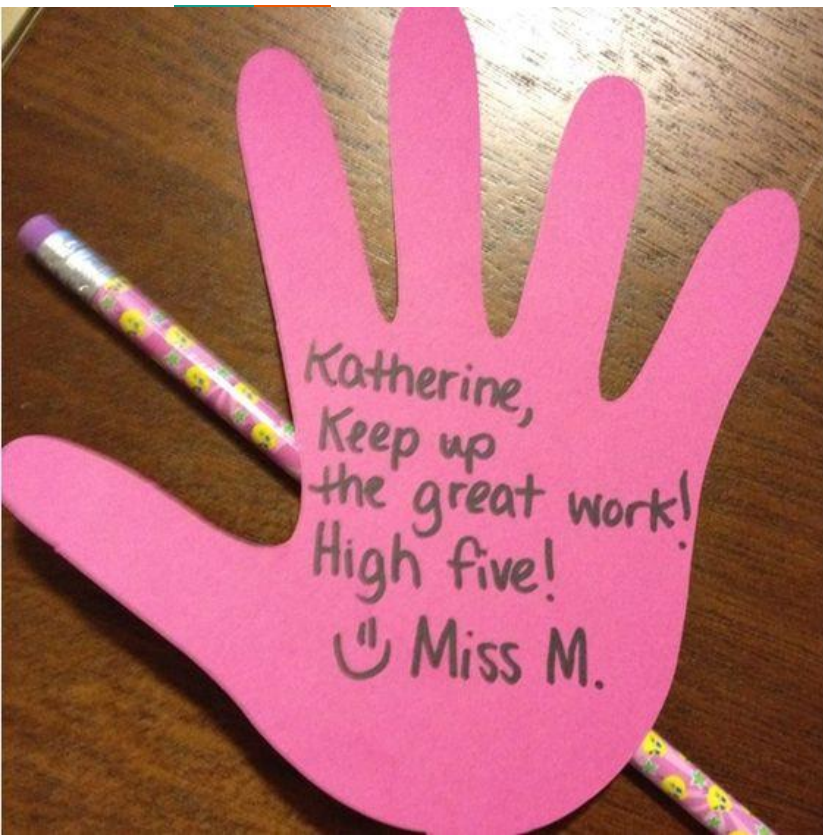 Katherine,
Keep up
the great work!
High five!
Miss M.